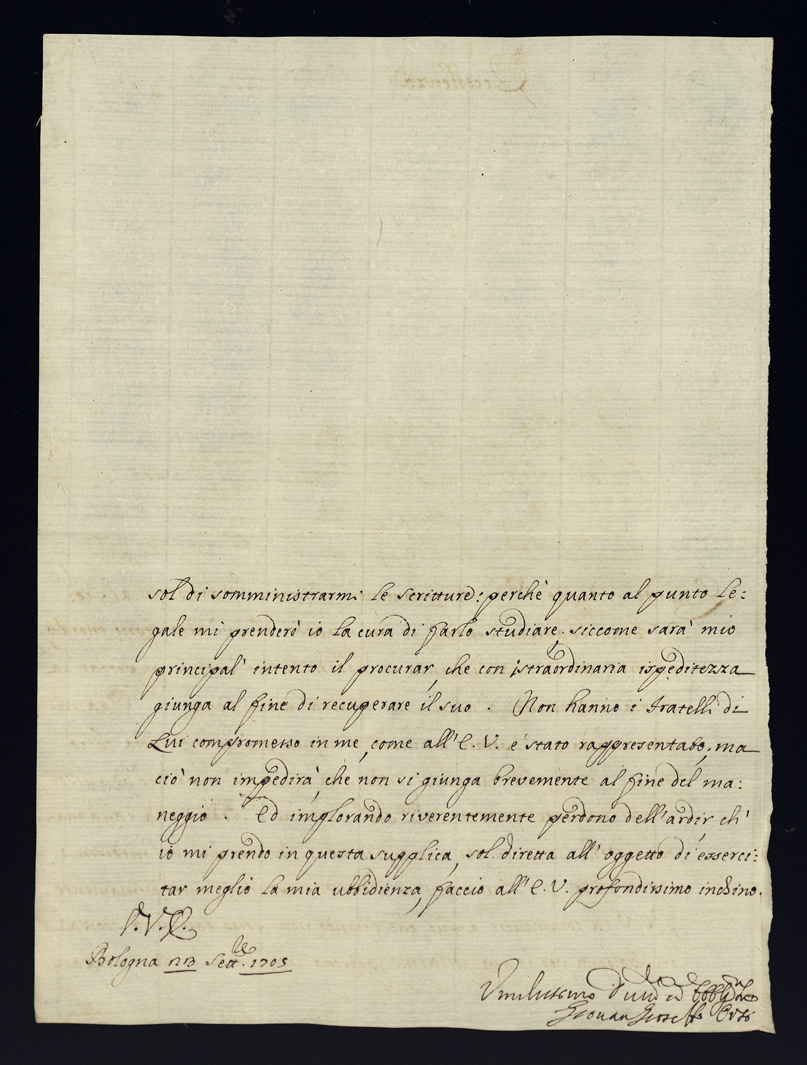 sol di somministrarmi le scritture: perchè quanto al punto le:
gale mi prenderò io la cura di farlo studiare, siccome sarà mio
principal' intento il procurar, che con istraordinaria ispeditezza
giunga al fine di recuperare il suo. Non hanno i fratelli di
Lui compromesso in me, come all'E. V. é stato rappresentato, ma
ciò non impedirà, che non si giunga brevemente al fine del ma:
neggio. Ed implorando riverentemente perdono dell'ardir ch'
io mi prendo in questa supplica, sol diretta all'oggetto di esserci:
tar meglio la mia ubbidienza, faccio all'E. V. profondissimo inchino.
Bologna 23 Sett.re 1705
Giovan Gioseffo Orsi